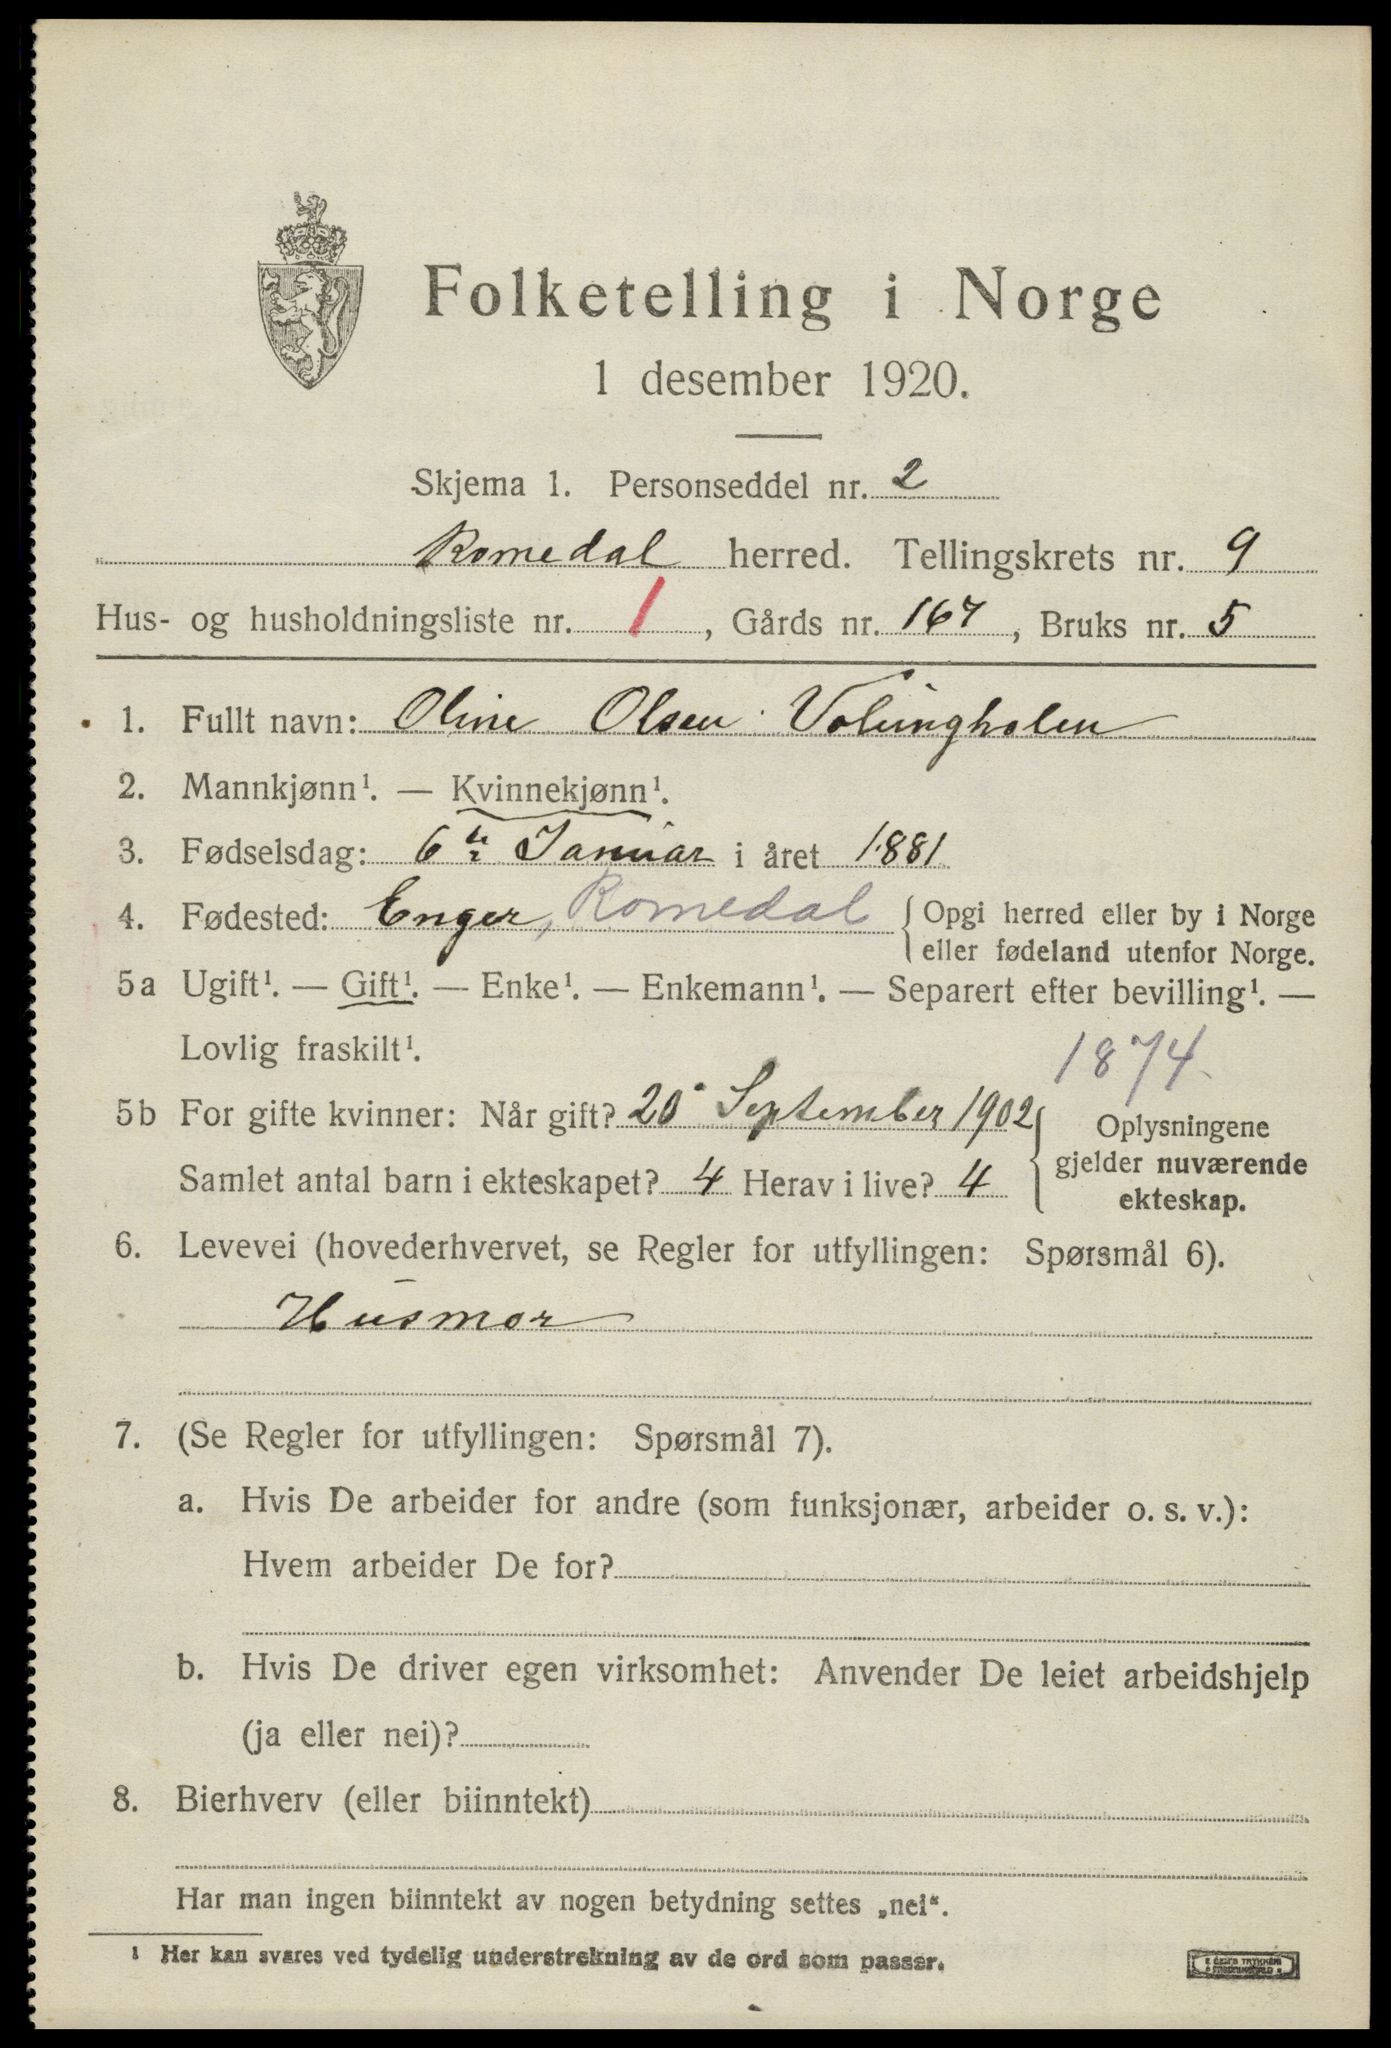 Folketelling i Norge
1 desember 1920.
Skjema 1. Personseddel nr. 2
Romedal herred. Tellingskrets nr. 9
Hus- og husholdningsliste nr. 1, Gårds nr. 167, Bruks nr. 5
1. Fullt navn: Oline Olsen
2. Mannkjønn¹. — Kvinnekjønn¹.
3. Fødselsdag: 6 Januar i året 1881
4. Fødested: Enger, Romedal { Opgi herred eller by i Norge
eller fødeland utenfor Norge.
5a Ugift¹. — Gift¹. — Enke¹. — Enkemann¹. — Separert efter bevilling¹. —
Lovlig fraskilt¹.
1874.
5b For gifte kvinner: Når gift? 20 September 1902 { Oplysningene
gjelder nuværende
Samlet antal barn i ekteskapet? 4 Herav i live? 4
ekteskap.
6. Levevei (hovederhvervet, se Regler for utfyllingen: Spørsmål 6).
Husmor
7. (Se Regler for utfyllingen: Spørsmål 7).
a. Hvis De arbeider for andre (som funksjonær, arbeider o. s. v.):
Hvem arbeider De for?
b. Hvis De driver egen virksomhet: Anvender De leiet arbeidshjelp
(ja eller nei)?
8. Bierhverv (eller biinntekt)
Har man ingen biinntekt av nogen betydning settes „nei“.
¹ Her kan svares ved tydelig understrekning av de ord som passer.